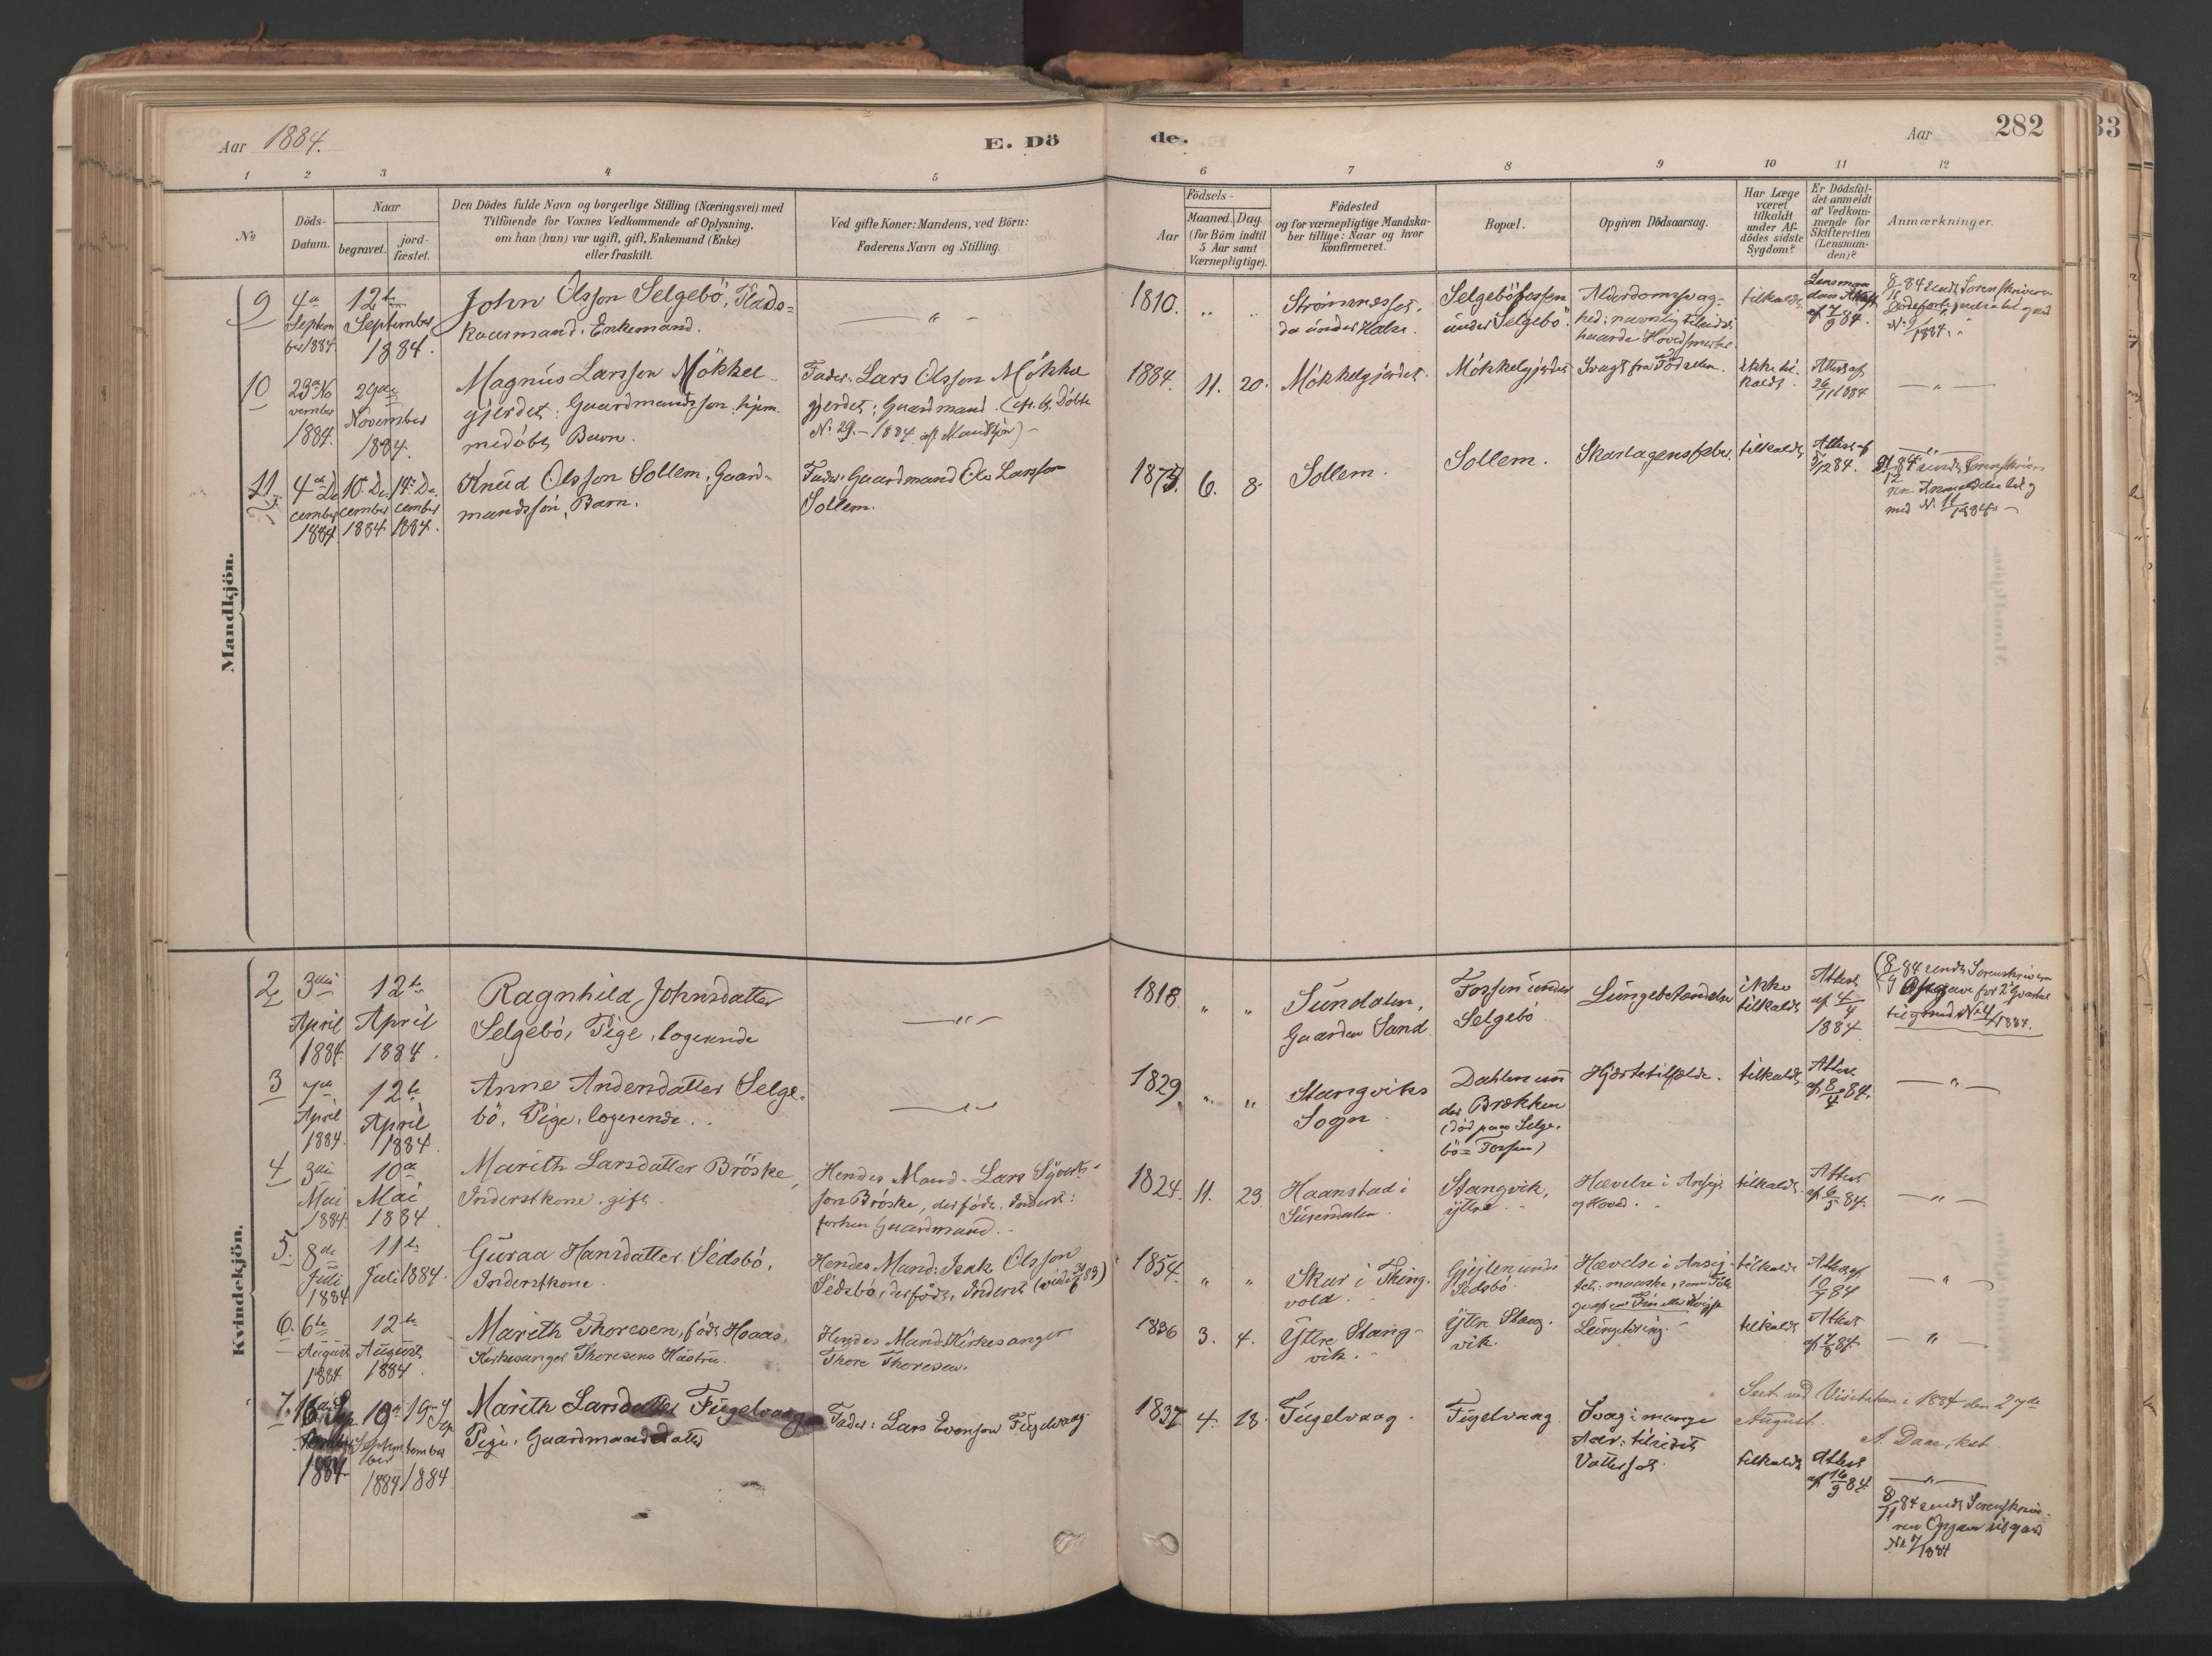 Aar 1884.
E. Dö
de.
Aar
282
33
1 2 3 4 5 6 7 8 9 10 11 12
No
Döds-
Datum.
Naar
begravet.
jord-
fæstet.
Den Dödes fulde Navn og borgerlige Stilling (Næringsvei) med
Tilföiende for Voxnes Vedkommende af Oplysning,
om han (hun) var ugift, gift, Enkemand (Enke)
eller fraskilt.
Ved gifte Koner: Mandens, ved Börn:
Faderens Navn og Stilling.
Födsels-
Aar
Maaned.
Dag.
(for Börn indtil
5 Aar samt
Værnepligtige).
Födested
og for værnepligtige Mandska-
ber tillige: Naar og hvor
konfirmeret.
Bopæl.
Opgiven Dödsaarsag.
Har Læge
været
tilkaldt
under Af-
dödes sidste
Sygdom?
Er Dödsfal-
det anmeldt
af Vedkom-
mende for
Skifteretten
(Lensman-
den)?
Anmærkninger.
Mandkjön.
9
4a
Septem
ber 1884.
12te
September
1884.
John Olsson Selgebö, Plads-
kaarmand. Enkemand.
— " —
1810.
" "
Strömnesset.
da under Halse.
Selgeböfossen
under Selgebö.
Alderdomssvag-
hed;
tilkaldt
Lensman
dens Attest
af 7/9 84.
8/11 84 sendt Sorenskriveren
No 9/1884.
10
23de No
vember
1884.
29de
November
1884.
Magnus Larsson Mökkel-
gjerdet; Gaardmandssön, hjem-
medöbt Barn.
Fader: Lars Olsson Mökkel
gjerdet; Gaardmand. (cfr. Döbte
No 29.—1884. af Mandkjön)—
1884.
11.
20.
Mökkelgjerdet.
Mökkelgjerdet
Svagt fra Födselen.
ikke til-
kaldt.
Attest af
26/11 1884
— " —
11
4de De
cember
1884
10. De
cember
1884
14. De
cember
1884.
Knud Olsson Sollem, Gaard-
mandssön, Barn.
Fader: Gaardmand Ole Larsson
Sollem.
6.
8.
Sollem.
Sollem.
Skarlagensfeber.
tilkaldt
Attest af
5/12 84.
— " —
med No 11/1884. —
Kvindekjön.
2
3die
April
1884.
12te
April
1884.
Ragnhild Johnsdatter
Selgebö, Pige, logerende
— " —
1818.
" "
Sundalen,
Gaarden Sand.
Fossen under
Selgebö.
Lungebetændelse
ikke
tilkaldt
Attest
af 4/4
1884.
Opgave for 2det Qvartal
til og med No 4/1884.
3
7de
April
1884.
12te
April
1884.
Anne Andersdatter Selge-
bö, Pige, logerende.
— " —
1829.
" "
Stangviks
Sogn
Dahlen un
der Brækken
(död paa Selge-
bö= Fossen)
Hjertetilfælde.
tilkaldt
Attest
af 8/4 84.
— " —
4
3die
Mai
1884
10de
Mai
1884.
Marith Larsdatter Bröske,
Inderstkone, gift.
Hendes Mand. Lars Syvert-
son Bröske, der födt, Inderst:
forhen Gaardmand.
1824.
11.
23.
Haanstad i
Surendalen.
Stangvik,
ytre.
Hævelse i Ansigt
og Hoved.
tilkaldt.
Attest
af 6/5 84.
— " —
5.
8de
Juli
1884
11te
Juli 1884.
Guraa Hansdatter Sedsbö,
Inderstkone.
Hendes Mand: Isak Olsson
Sedsbö, derfödt, Inderst
1854.
" "
Skar i Thing-
vold.
Gjejlen under
Sedsbö.
Hævelse i Ansig-
tet;
tilkaldt
Attest af
10/7 84
— " —
6.
6te
August
1884
12te
August
1884.
Marith Thoresen, födt Haaas,
Kirkesanger Thoresens Hustru.
Hendes Mand. Kirkesanger
Thore Thoresen.
1836
3.
4.
Ytre Stang-
vik.
Ytre Stang-
vik.
Lungetæring.
tilkaldt
Attest
af 7/8 84.
— " —
Seet ved Visitatsen i 1884 den 27de
August.
7.
1884
Septem
ber
1884
19
Sep
tember
1884
Marith Larsdatter Fugelvaag
Pige, Gaardmandsdatter
Fader: Lars Evensen Fugelvaag.
1837
4.
18.
Fugelvaag.
Fugelvaag
Svag i mange
Aar; tilsidst
Vattersot.
tilkaldt
Attest
af 16/9 84
— " —
8/11 84 sendt Sorenskrive-
ren Opgave til og med
No 7/1884